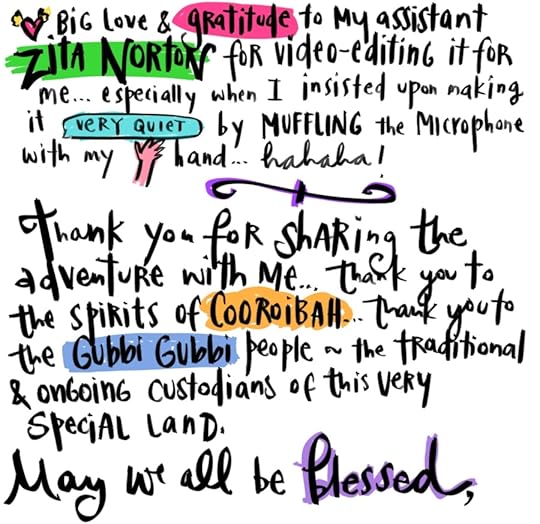 BiG Love & gratitude to My assistant
ZiTA NORTON for video-editing it for
me... especially when I insisted upon making
it VERY QUIET by MUFFLING the Microphone
with my hand... hahaha!
Thank you for SHARing the
adVenTURE with Me... thank you to
the spirits of COOROiBAH... thank you to
the GUBBi GUBBi people ~ the traditional
& ongoing custodians of this very
SpeciAL LanD.
May we all be Blessed,